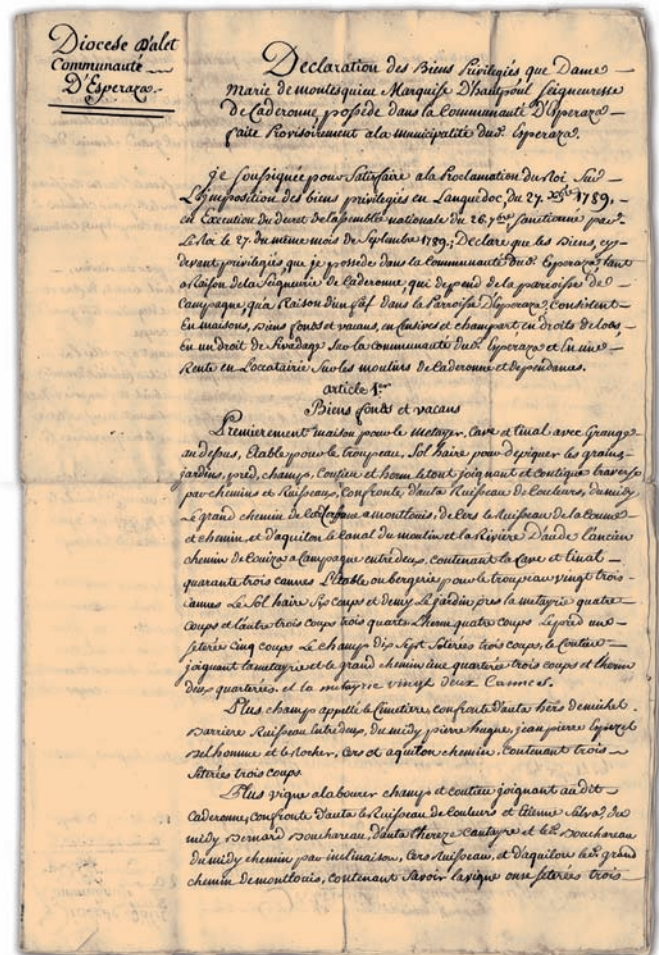 Diocese D'alet
Communauté
D'Esperaza.
Declaration des Biens Privilegiés que Dame
Marie de montesquieu Marquise D'hautpoul Seigneuresse
de Caderonne, possède dans la Communauté D'Esperaza
faite Provisoirement a la municipalité dud. Esperaza.
je soussignée pour Satisfaire a la Proclamation du Roi Sur
L'imposition des biens privilegiés en Languedoc, du 27. 1789.
en Execution du decret de l'assemblée nationale du 26. 7bre Sanctionné par
Le Roi le 27. du meme mois de Septembre 1789.; Declare que les Biens, cy
devant privilegiés, que je possède dans la Communauté dud. Esperaza, tant
a Raison de la Seigneurie de Caderonne, qui depend de la parroisse de
Campagne, qu'a Raison d'un fief dans la Parroisse D'Esperaza, Consistent
En maisons, Biens fonds et vacans, en Censives et champart, en droits de lods,
En un droit de Sivadage Sur la communauté dud. Esperaza et En une
Rente en Loccatairie Sur les moulins de Caderonne et dependances.
article 1.er
Biens fonds et vacans
Premierement maison pour le metayer, Cave et tinal avec Grange
au dessus, Etable pour le troupeau, Sol haire pour depiquer les grains,
jardins, pred, champs, Coutieu et herm le tout joignant et contigu traversé
par chemins et Ruisseaux, Confronte d'auta Ruisseau de Couleurs, du midy
Le grand chemin de a montlouis, de Cers le Ruisseau de la Coume
et chemin, et d'aquilon le Canal du moulin et la Rivière D'aude l'ancien
chemin de Couiza a Campagne entre deux, contenant la Cave et tinal
quarante trois cannes L'Etable ou bergerie pour le troupeau vingt trois
Cannes Le Sol haire Six coups et demy Le jardin pres la metayrie quatre
Coups et l'autre trois coups trois quarts L'herm quatre coups Le pred une
seterée Cinq coups Le champ dix Sept Seterées trois coups, le Coutieu
joignant la metayrie et le grand chemin une quarterée trois coups et l'herm
deux quarterées. et la metayrie vingt deux Cannes.
Plus champ appellé le Cimetiere, confronte d'auta hers de michel
Barriere Ruisseau Entre deux, du midy pierre hugue, jean pierre
Belhomme et le Rocher, Cers et aquilon chemin, Contenant trois
Seterées trois coups
Plus vigne a labourer champ et coutieu joignant audit
Caderonne, confronte d'auta le Ruisseau de Couleurs et Etienne Salva, du
midy Bernard Bouchareau, d'auta Thereze Cautayre et led. Bouchareau
du midy chemin par inclinaison, Cers Ruisseau, et d'aquilon led. grand
chemin de montlouis, contenant Savoir la vigne onze Seterées trois